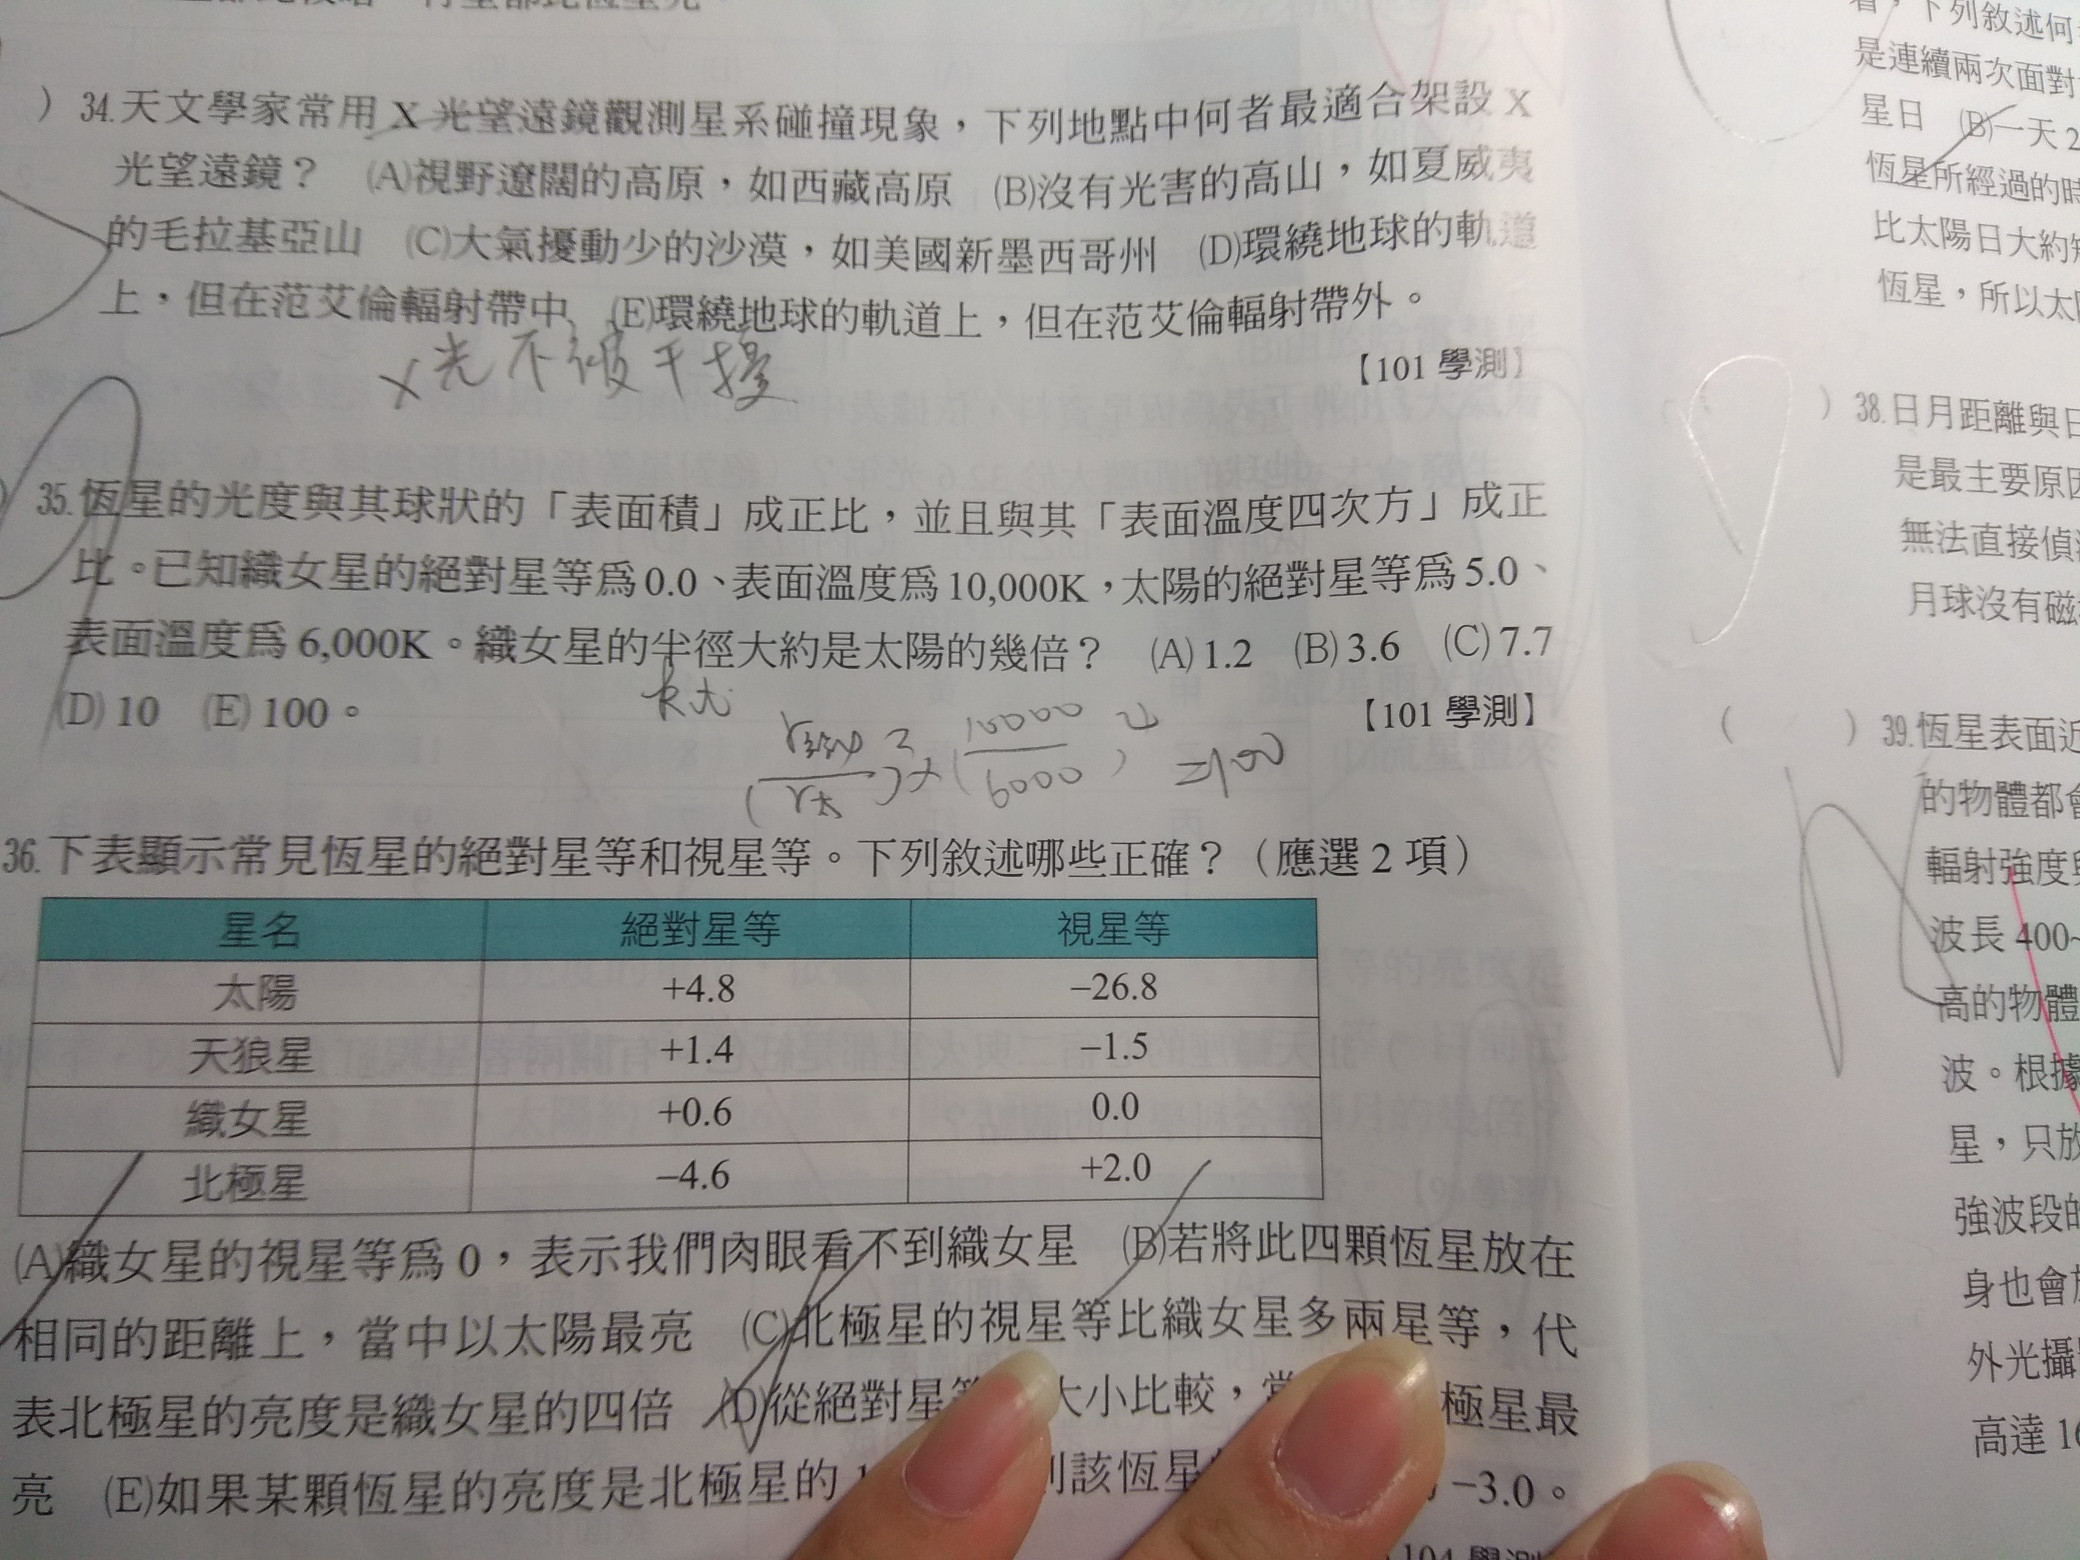 34.天文學家常用X光望遠鏡觀測星系碰撞現象，下列地點中何者最適合架設X
光望遠鏡？ (A)視野遼闊的高原，如西藏高原 (B)沒有光害的高山，如夏威夷
的毛拉基亞山 (C)大氣擾動少的沙漠，如美國新墨西哥州 (D)環繞地球的軌道
上，但在范艾倫輻射帶中 (E)環繞地球的軌道上，但在范艾倫輻射帶外。
【101 學測】
X光不被干擾
35.恆星的光度與其球狀的「表面積」成正比，並且與其「表面溫度四次方」成正
比。已知織女星的絕對星等為0.0、表面溫度為10,000K，太陽的絕對星等為5.0、
表面溫度為6,000K。織女星的半徑大約是太陽的幾倍？ (A)1.2 (B)3.6 (C)7.7
(D)10 (E)100。
【101 學測】
10000
6000
=100
36.下表顯示常見恆星的絕對星等和視星等。下列敘述哪些正確？（應選2項）
星名 絕對星等 視星等
太陽 +4.8 −26.8
天狼星 +1.4 −1.5
織女星 +0.6 0.0
北極星 −4.6 +2.0
(A)織女星的視星等為0，表示我們肉眼看不到織女星 (B)若將此四顆恆星放在
相同的距離上，當中以太陽最亮 (C)北極星的視星等比織女星多兩星等，代
表北極星的亮度是織女星的四倍 (D)從絕對星 大小比較， 極星最
亮 (E)如果某顆恆星的亮度是北極星的 該恆星 −3.0。
下列敘述何
是連續兩次面對
星日 (B)一天2
恆星所經過的時
比太陽日大約
恆星，所以太
38.日月距離與日
是最主要原因
無法直接偵
月球沒有磁
39.恆星表面近
的物體都會
輻射強度與
波長400~
高的物體
波。根據
星，只放
強波段的
身也會
外光攝
高達16